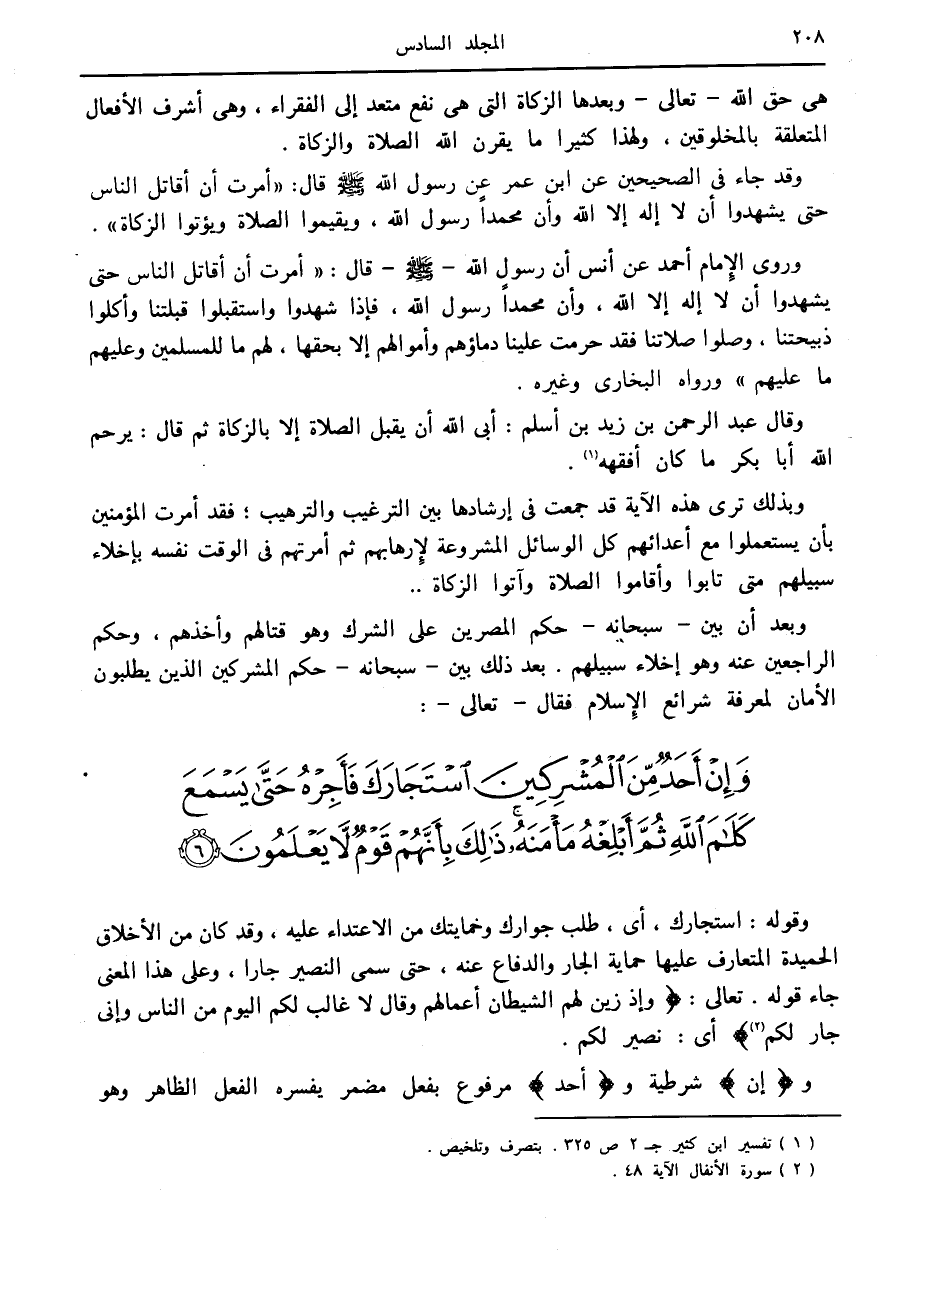 ٢٠٨
المجلد السادس
هى حق الله - تعالى - وبعدها الزكاة التى هى نفع متعد إلى الفقراء ، وهى أشرف الأفعال
المتعلقة بالمخلوقين ، ولهذا كثيرا ما يقرن الله الصلاة والزكاة .
وقد جاء فى الصحيحين عن ابن عمر عن رسول الله ﷺ قال: «أمرت أن أقاتل الناس
حتى يشهدوا أن لا إله إلا الله وأن محمداً رسول الله ، ويقيموا الصلاة ويؤتوا الزكاة» .
وروى الإمام أحمد عن أنس أن رسول الله - ﷺ - قال : « أمرت أن أقاتل الناس حتى
يشهدوا أن لا إله إلا الله ، وأن محمداً رسول الله ، فإذا شهدوا واستقبلوا قبلتنا وأكلوا
ذبيحتنا ، وصلوا صلاتنا فقد حرمت علينا دماؤهم وأموالهم إلا بحقها ، لهم ما للمسلمين وعليهم
ما عليهم » ورواه البخارى وغيره .
وقال عبد الرحمن بن زيد بن أسلم : أبى الله أن يقبل الصلاة إلا بالزكاة ثم قال : يرحم
الله أبا بكر ما كان أفقهه(١) .
وبذلك ترى هذه الآية قد جمعت فى إرشادها بين الترغيب والترهيب ؛ فقد أمرت المؤمنين
بأن يستعملوا مع أعدائهم كل الوسائل المشروعة لإرهابهم ثم أمرتهم فى الوقت نفسه بإخلاء
سبيلهم متى تابوا وأقاموا الصلاة وآتوا الزكاة ..
وبعد أن بين - سبحانه - حكم المصرين على الشرك وهو قتالهم وأخذهم ، وحكم
الراجعين عنه وهو إخلاء سبيلهم . بعد ذلك بين - سبحانه - حكم المشركين الذين يطلبون
الأمان لمعرفة شرائع الإسلام فقال - تعالى - :
وَإِنْ أَحَدٌ مِّنَ ٱلْمُشْرِكِينَ ٱسْتَجَارَكَ فَأَجِرْهُ حَتَّىٰ يَسْمَعَ
كَلَٰمَ ٱللَّهِ ثُمَّ أَبْلِغْهُ مَأْمَنَهُۥ ۚ ذَٰلِكَ بِأَنَّهُمْ قَوْمٌ لَّا يَعْلَمُونَ ٦
وقوله : استجارك ، أى ، طلب جوارك وحمايتك من الاعتداء عليه ، وقد كان من الأخلاق
الحميدة المتعارف عليها حماية الجار والدفاع عنه ، حتى سمى النصير جارا ، وعلى هذا المعنى
جاء قوله . تعالى : ﴿ وإذ زين لهم الشيطان أعمالهم وقال لا غالب لكم اليوم من الناس وإنى
جار لكم(٢)﴾ أى : نصير لكم .
و ﴿ إن ﴾ شرطية و ﴿ أحد ﴾ مرفوع بفعل مضمر يفسره الفعل الظاهر وهو
( ١ ) تفسير ابن كثير جـ ٢ ص ٣٢٥ . بتصرف وتلخيص .
( ٢ ) سورة الأنفال الآية ٤٨ .